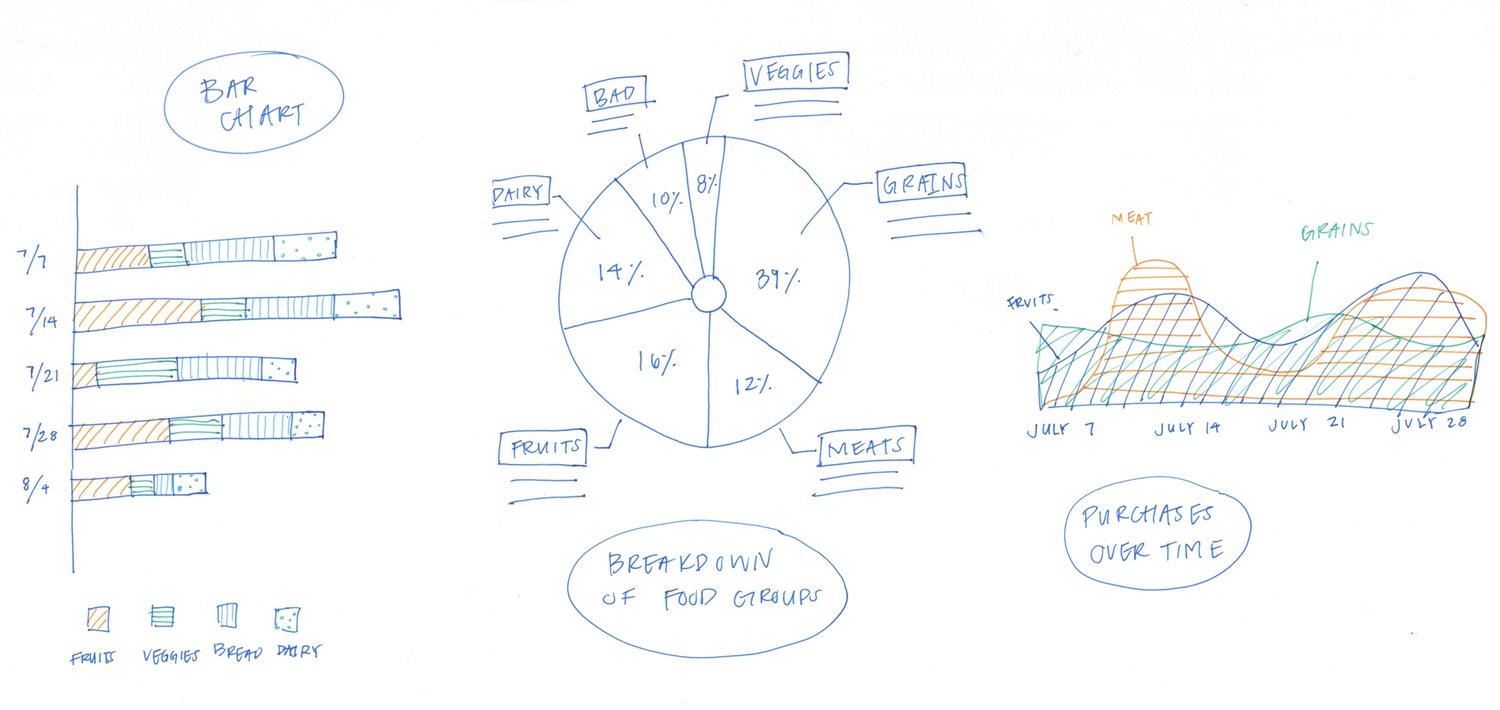 BAR
CHART
7/7
7/14
7/21
7/28
8/4
FRUITS VEGGIES BREAD DAIRY
VEGGIES
BAD
DAIRY
GRAINS
10% 8%
14% 39%
16% 12%
FRUITS MEATS
BREAKDOWN
OF FOOD GROUPS
MEAT
GRAINS
FRUITS
JULY 7 JULY 14 JULY 21 JULY 28
PURCHASES
OVER TIME